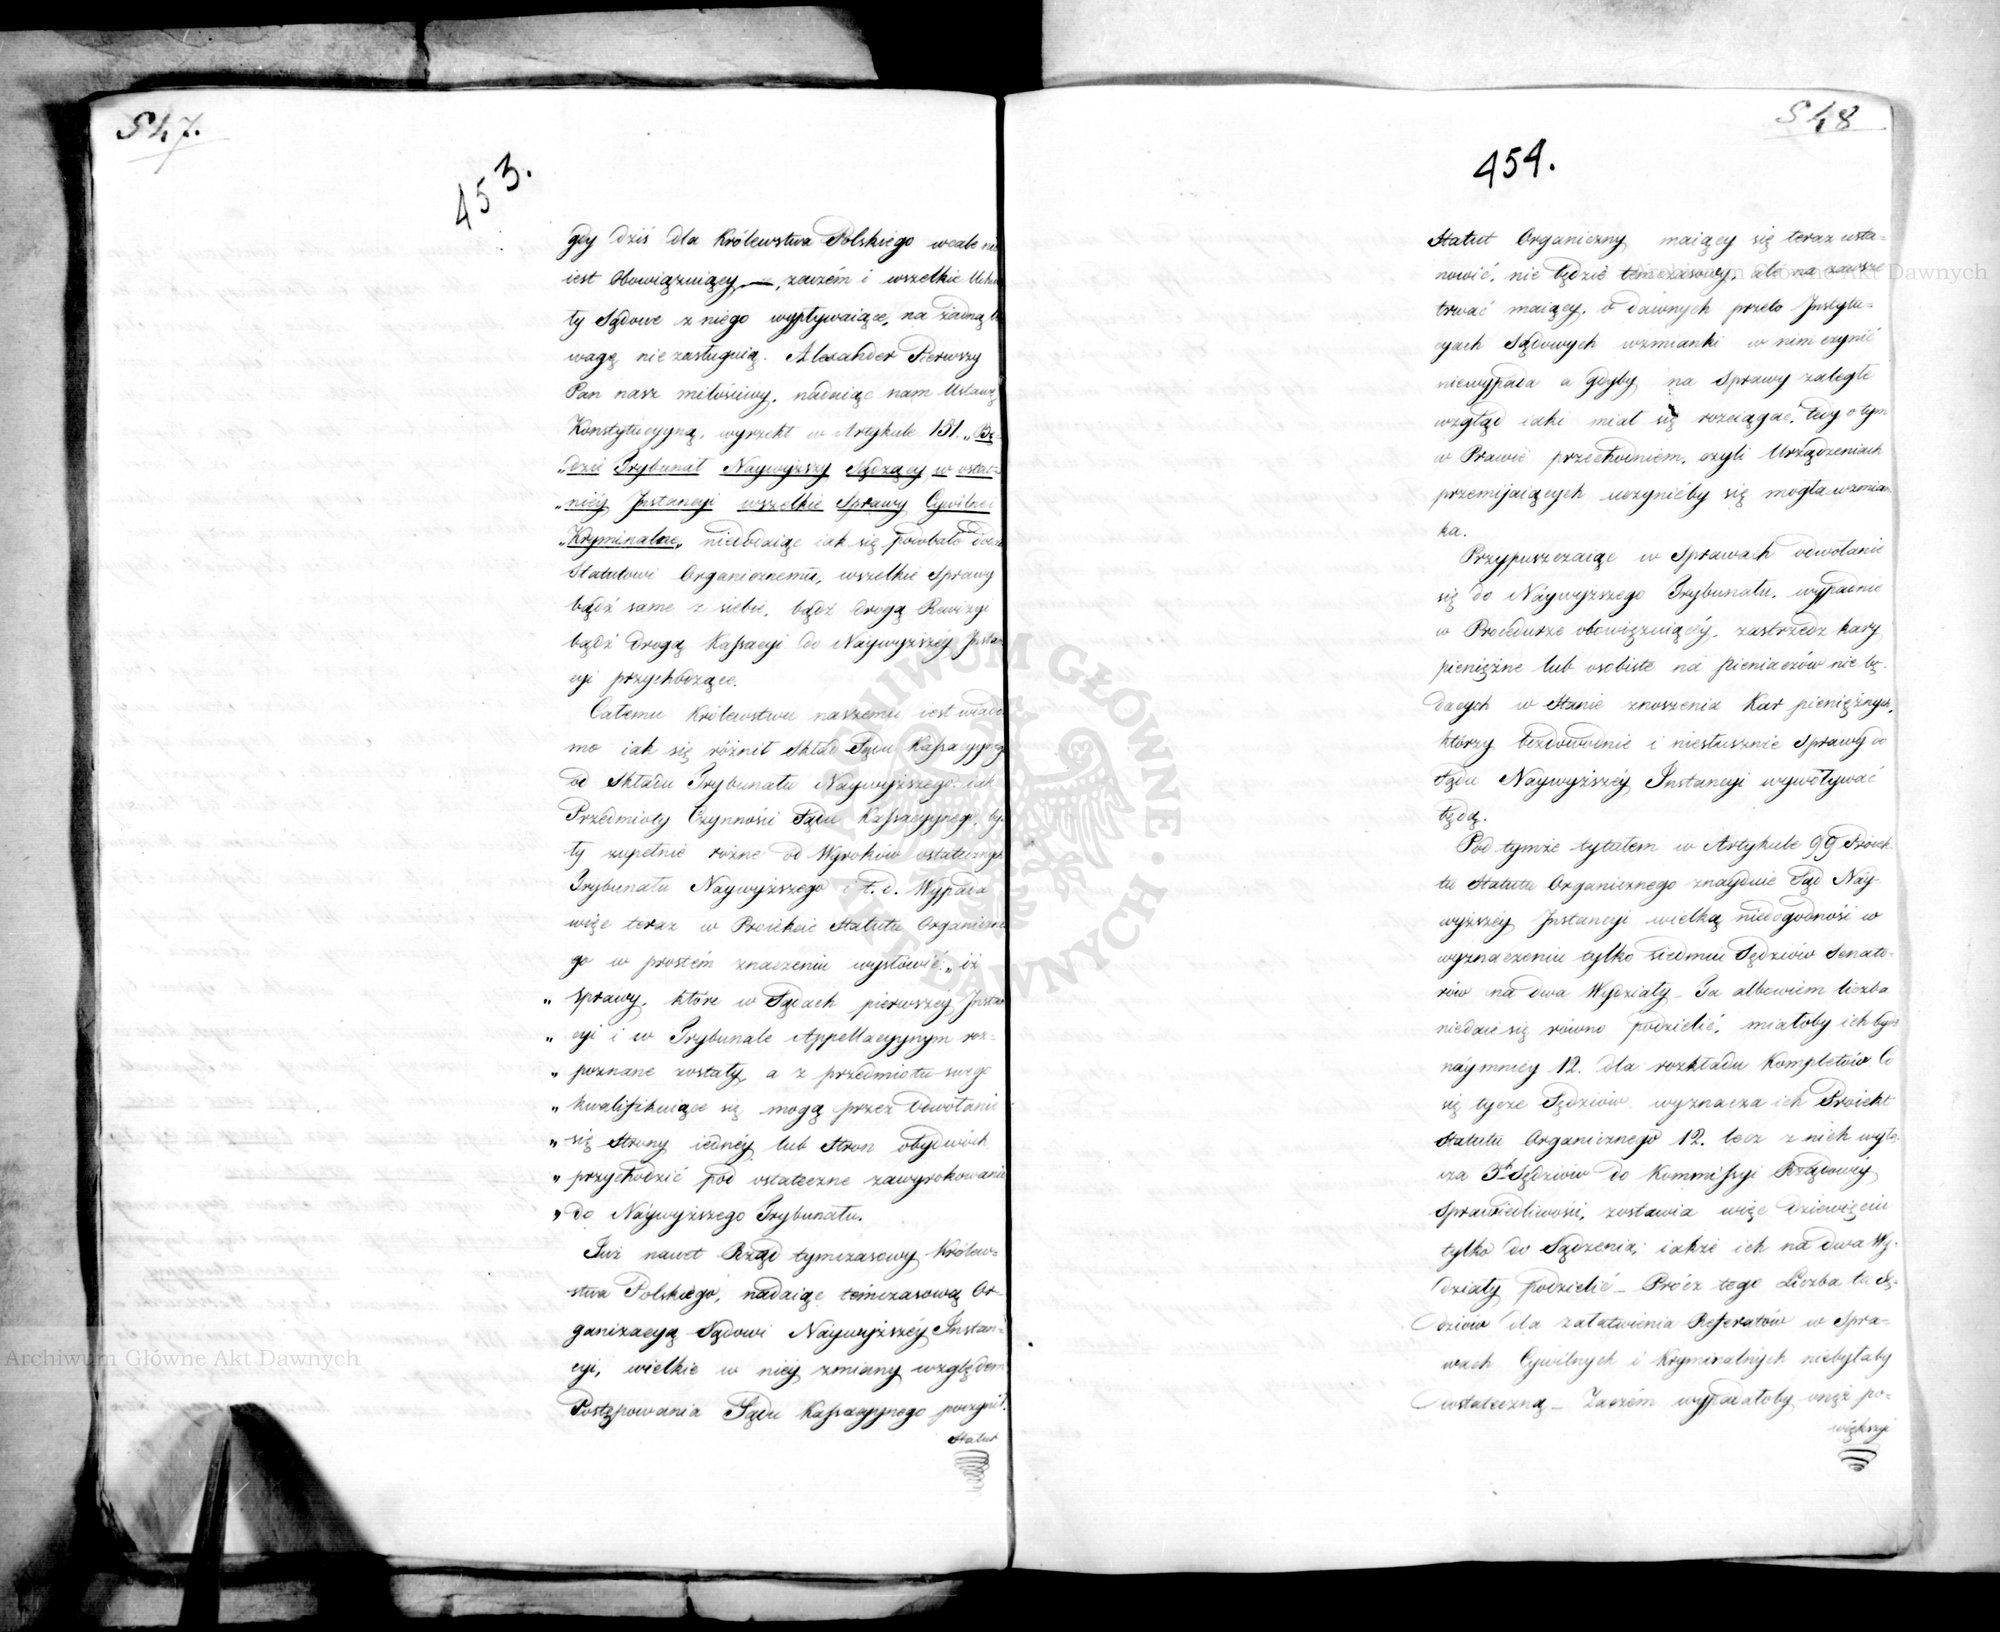 547.
453.
gdy dziś dla Królewstwa Polskiego wcale nie
iest obowiązuiący —, zaczém i wszelkie
ty Sądowe z niego wypływaiące, na żadną
wagę nie zasługuią. Alexander Pierwszy
Pan nasz miłościwy, nadaiąc nam Ustawę
Konstytucyyną, wyrzekł w Artykule 151. „Bę-
„dzie Trybunał Naywyższy Sądzący w ostat-
„niéy Instancyi wszelkie Sprawy Cywilne i
„Kryminalne„ niedodaiąc iak się podobało
Statutowi Organicznemu, wszelkie Sprawy
bądź same z siebie, bądź drogą Rewizyi
bądź drogą Kassacyi do Naywyższéy Instan
cyi przychodzące.
Całemu Królewstwu naszemu iest wiado
mo iak się różnił Skład Sądu Kassacyynego
od Składu Trybunału Naywyższego: iak
Przedmioty Czynności Sądu Kassacyynego, by-
ły zupełnie różne od Wyroków ostatecznych
Trybunału Naywyższego i t. d. Wypada
więc teraz w Proiekcie Statutu Organiczne
go w prostém znaczeniu wysłowić: „iż
„ sprawy, które w Sądach pierwszey Instan
„ cyi i w Trybunale Appellacyynym roz-
„ poznane zostały, a z przedmiotu swego
„ kwalifikuiące się mogą przez odwołanie
„ się Strony iednéy lub Stron obydwóch
„ przychodzić pod ostateczne zawyrokowanie
„ do Naywyższego Trybunału.
Już nawet Rząd tymczasowy Królew-
stwa Polskiego, nadaiąc témczasową Or-
ganizacyą Sądowi Naywyższéy Instan-
cyi, wielkie w niéy zmiany względem
Postępowania Sądu Kassacyynego poczynił.
Statut
548
454.
Statut Organiczny maiący się teraz usta-
nowić, nie będzie témczasowy, ale na zawsze
trwać maiący, o dawnych przeto Instytu-
cyach Sądowych wzmianki w nim czynić
niewypada a gdyby na Sprawy zaległe
wzgląd iaki miał się rozciągać, tedy o tym
w Prawie przechodniem, czyli Urządzeniach
przemijaiących uczynićby się mogła wzmian
ka.
Przypuszczaiąc w Sprawach odwołanie
się do Naywyższego Trybunału, wypadnie
w Procedurze obowiązuiącéy, zastrzedz kary
pieniężne lub osobiste na pieniaczów nie bę-
dących w Stanie znoszenia Kar pieniężnych,
którzy bezdowodnie i niesłusznie Sprawy do
Sądu Naywyższéy Instancyi wywoływać
będą.
Pod tymże tytułem w Artykule 99 Proiek-
tu Statutu Organicznego znayduie Sąd Nay-
wyższéy Instancyi wielką niedogodność w
wyznaczeniu tylko siedmiu Sędziów Senato-
rów na dwa Wydziały – Ta albowiem liczba
niedaie się równo podzielić, miałoby ich bydź
náymniey 12. dla rozkładu Kompletów Co
się tycze Sędziów wyznacza ich Proiekt
Statutu Organicznego 12. lecz z nich wyłą-
cza 3ch Sędziów do Kommissyi Rządowéy
Sprawiedliwości, zostawia więc dziewięciu
tylko do Sądzenia; iakże ich na dwa Wy-
działy podzielić – Prócz tego Liczba ta Sę-
dziów dla załatwienia Referatów w Spra-
wach Cywilnych i Kryminalnych niebyłaby
dostateczną – Zaczém wypadałoby onąż po-
większyć
Archiwum Główne Akt Dawnych
Archiwum Główne Akt Dawnych
ARCHIWUM GŁÓWNE · AKT DAWNYCH ·